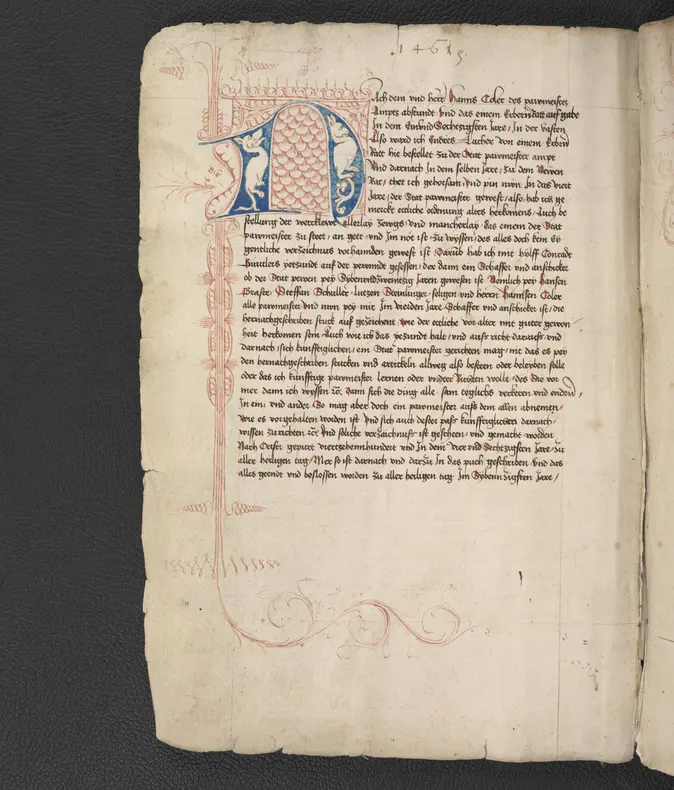 1461
NAch dem vnd herr Hanns Coler des pawmeister
Ampts abstundt Vnd das einem Erbern Ratt auf gabe
In dem Einvnd Sechezigsten Jare / In der vasten
Also ward ich Endres Tucher von einem Erbern
Ratt hie bestellet zu der Stat pawmeister ampt
Vnd darnach In dem selben Jare / zu dem Newen
Rat / thet ich gehorsam Vnd pin nwn In das viert
Jare / der Stat pawmeister gewest / also hab ich ge
merckt ettliche ordenung alts herkomens / Auch be
stellung der werckleut allerlay zewgs vnd mancherlay das einem der Stat
pawmeister zu steet / an gett vnd Im not ist zu wyssen / des alles doch kein ey
gentliche verzeichnus vorhannden gewest ist / Darumb hab ich mit hylff Conradt
yetzundt auf der pewnndt gesessen / der dann ein Schaffer vnd anschicker
ob der Stat pewen pey Sybenvndzweintzig Jaren gewesen ist Nemlich pey Hansen
Graser Steffan Schuller lutzen Steinlinger seligen vnd herrn Hannsen Coler
alle pawmeister Vnd nwn pey mir Im vierden Jare Schaffer vnd anschicker ist / die
hernachgeschriben stuck auf gezeichent wie der ettliche vor alter mit guter gewon
heit herkomen sein Auch wie ich das yezundt halt / vnd auss richt darauss vnd
darnach / sich kunfftiglichen / ein Stat pawmeister gerichten mag / mit das es pey
den hernachgeschriben stucken vnd artickeln allweg also besteen oder beleyben solle
oder das ich kunfftige pawmeister lernen oder vnderrichten wolle / des Sie vor
mer dann ich wyssen etc. Dann sich die ding alle sam teglichs verkeren vnd endern
In ein vnd ander So mag aber doch ein pawmeister auss dem allen abnemen /
wie es vorgehalten worden ist Vnd sich auch dester pass kunfftiglichen darnach
wissen zu richten etc. Vnd soliche verzaichnuss ist gescheen / vnd gemacht worden
Nach Cristi gepurt viertzehenhundert vnd In dem Vier vnd Sechezigsten Jare zu
aller heiligen tag / Mer so ist darnach vnd darzu In das puch geschriben vnd das
alles geendt vnd beslossen worden zu aller heiligen tag Im Sybennzigsten Jare /